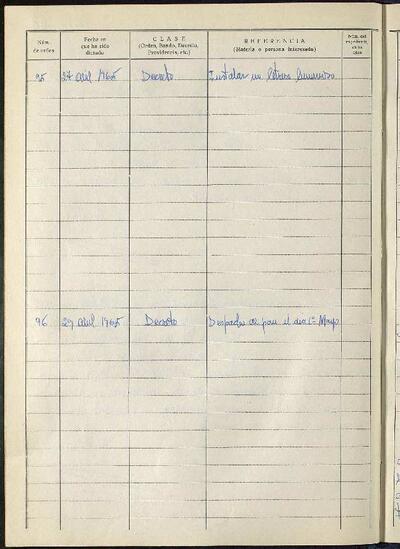 Núm. de orden
Fecha en que ha sido dictado
CLASE
(Orden, Bando, Decreto, Providencia, etc.)
REFERENCIA
(Materia o persona interesada)
Núm. del expediente
95 27 abril 1965 Decreto Instalar un letrero luminoso
96 29 abril 1965 Decreto Despacho de pan el día 1º Mayo